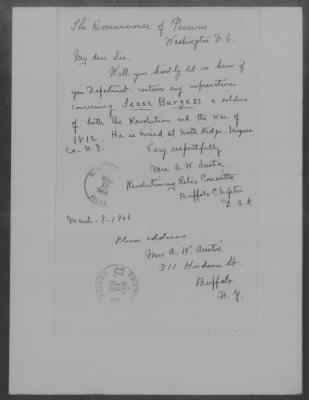 The Commissioner of Pensions
Washington D.C.
My dear Sir,
Will you kindly let me know if
your Department contains any information
concerning Isaac Burgess a soldier
of both the Revolution and the War of
1812. He is buried at North Ridge - Niagara
Co - N.Y.
Very respectfully
Mrs A. W. Austin
Revolutionary Relics Committee
Buffalo Chapter
D.A.R.
March - 9 - 1906
Please address
Mrs A. W. Austin
311 Hudson St.
Buffalo
N.Y.